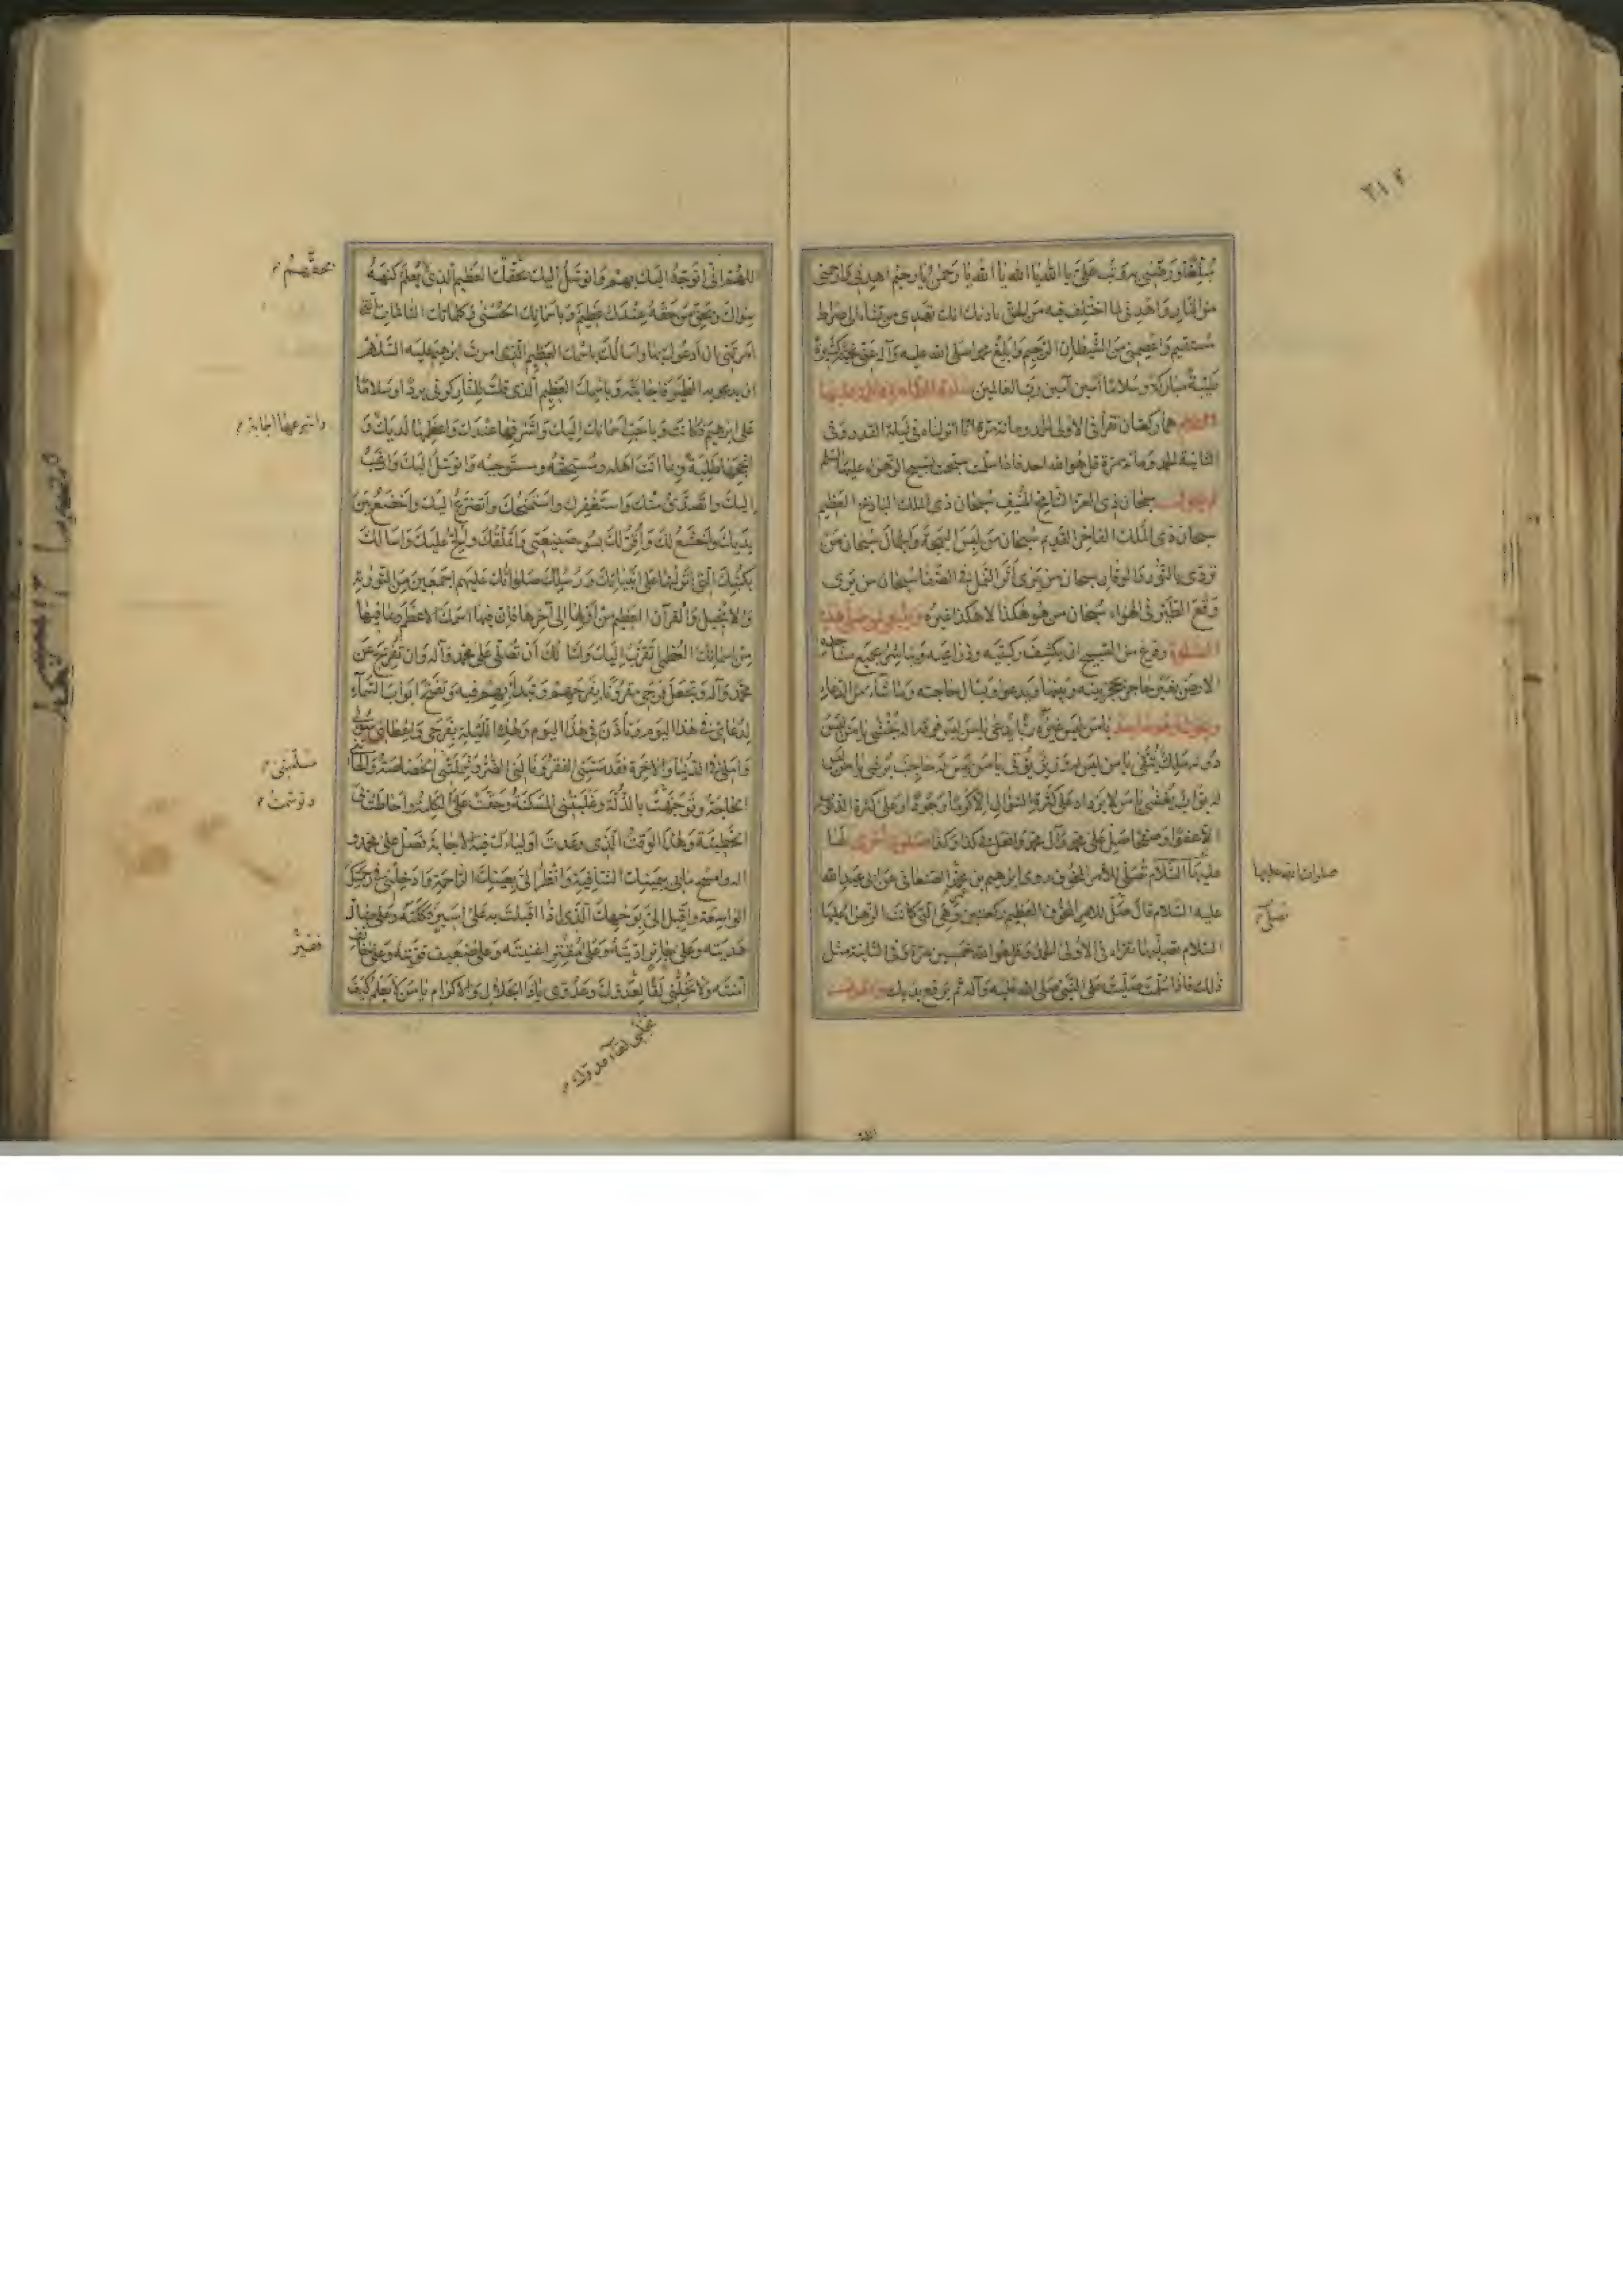 مِنَ النَّارِ وَاهْدِنِي لِمَا اخْتُلِفَ فِيهِ مِنَ الْحَقِّ بِاِذْنِكَ اِنَّكَ تَهْدِي مَنْ تَشَاءُ اِلَى صِرَاطٍ
مُسْتَقِيمٍ وَاعْصِمْنِي مِنَ الشَّيْطَانِ الرَّجِيمِ وَاَبْلِغْ مُحَمَّدًا صَلَّى الله عليه وَآلِهِ عَنِّي تَحِيَّةً كَثِيرَةً
طَيِّبَةً مُبَارَكَةً وَسَلَامًا آمِينَ آمِينَ رَبَّ الْعَالَمِينَ
هما ركعتان تقرأ فى الاولى الحمد ومائة مرة انا انزلناه فى ليلة القدر وفى
الثانية الحمد ومائة مرة قل هو الله احد فاذا سلّمت سبّحت تسبيح الزهراء عليها السلم
سبحان ذى العز الشامخ المنيف سبحان ذى الجلال الباذخ العظيم
سبحان ذى الملك الفاخر القديم سبحان من لبس البهجة والجمال سبحان من
تردى بالنور والوقار سبحان من يرى أثر النمل فى الصفا سبحان من يرى
وقع الطير فى الهواء سبحان من هو هكذا لا هكذا غيره وينبغى لمن صلّى هذه
الصلوة وفرغ من التسبيح ان يكشف ركبتيه وذراعيه ويباشر بجميع مساجده
الارض بغير حاجز يحجز بينه وبينها ويدعو ويسأل حاجته وما شاء من الدعاء
ويقول وهو ساجد يا من ليس غيره ربّ يدعى يا من ليس فوقه اله يخشى يا من ليس
دونه ملك يتّقى يا من ليس له وزير يؤتى يا من ليس له حاجب يرشى يا من ليس
له بواب يغشى يا من لا يزداد على كثرة السؤال الا كرما وجودا وعلى كثرة الذنوب
الا عفوا وصفحا صلّ على محمد وآل محمد وافعل بى كذا وكذا صلوة اخرى لها
عليها السلام تصلّى للامر المخوف روى ابرهيم بن محمد الصنعانى عن ابى عبد الله
عليه السلام قال تصلّى للامر المخوف العظيم ركعتين وهى التى كانت الزهراء عليها
السلام تصلّيها تقراء فى الاولى الحمد وقل هو الله خمسين مرة وفى الثانية مثل
ذلك فاذا سلّمت صلّيت على النبى صلى الله عليه وآله ثم ترفع يديك وتقول
فصلّى
اللهم انى اتوجه اليك بهم واتوسل اليك بحقك العظيم الذى لا يعلم كنهه
سواك وبحق من حقه عندك عظيم وباسمائك الحسنى وكلماتك التامات التى
امرتنى ان ادعوك بها واسالك باسمك العظيم الذى امرت ابرهيم عليه السلام
ان يدعو به الطير فاجابته وباسمك العظيم الذى قلت للنار كونى بردا وسلاما
على ابرهيم فكانت وباحبّ اسمائك اليك واشرفها عندك واعظمها لديك و
انجحها طلبة وبما انت اهله ومستحقه ومستوجبه واتوسل اليك وارغب
اليك واتصدق منك واستغفرك واستمنحك واتضرع اليك واخضع بين
يديك واخشع لك واقرّ لك بسوء صنيعتى واتملقك والحّ عليك واسالك
بكتبك التى انزلتها على انبيائك ورسلك صلواتك عليهم اجمعين من التورية
والانجيل والقرآن العظيم من اولها الى آخرها فان فيها اسمك الاعظم وبما فيها
من اسمائك العظمى اتقرب اليك واسالك ان تصلى على محمد وآله وان تفرج عن
محمد وآله وتجعل فرجى مقرونا بفرجهم وتبدأ بهم فيه وتفتح ابواب السماء
لدعائى فى هذا اليوم وتأذن فى هذا اليوم وهذه الليلة بفرجى واعطائى سؤلى
واملى فى الدنيا والآخرة فقد مسّنى الفقر ونالنى الضر وشملتنى الخصاصة والجأتنى
الحاجة وتوجهت بالذلة وغلبتنى المسكنة وحقت على الكلمة واحاطت بى
الخطيئة وهذا الوقت الذى وعدت اولياءك فيه الاجابة فصلّ على محمد و
اله وامسح ما بى بيمينك الشافية وانظر الىّ بعينك الراحمة وادخلنى فى رحمتك
الواسعة واقبل الىّ بوجهك الذى اذا اقبلت به على اسير فككته وعلى ضالّ
هديته وعلى حائر اديته وعلى مقتر اغنيته وعلى ضعيف قويته وعلى خائف
آمنته ولا تخلّنى لقا لعدوك وعدوى يا ذا الجلال والاكرام يا من لا يعلم كيف
بحقهم
واسرعها اجابة
مسلمتنى
وتوسمت
فقير
تخلنى لقاء عدوك